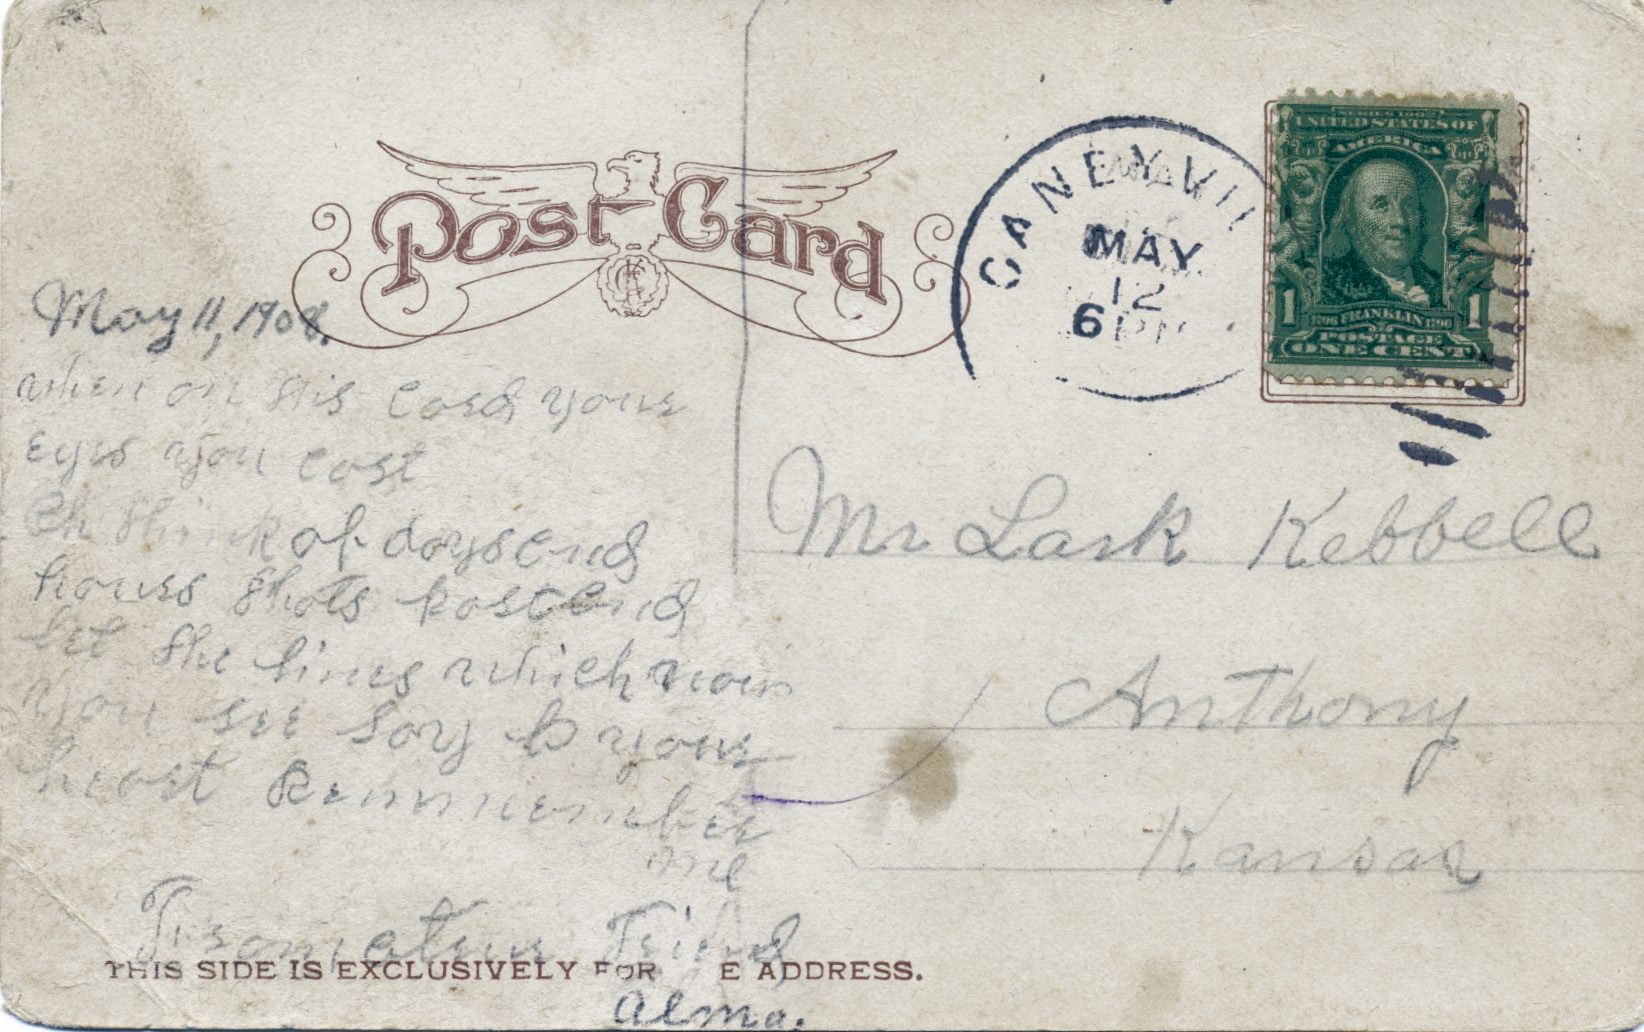 Post Card
CANEYVIL
MAY
12
6 PM
SERIES 1902
UNITED STATES OF
AMERICA
1 1706 FRANKLIN 1790 1
POSTAGE
ONE CENT
May 11, 1908.
when on this Card your
eyes you cast
Oh think of days and
hours thats past and
let the lines which now
you see say to your
heart Remmember
me
From a true Friend
Alma.
Mr Lark Kebbell
Anthony
Kansas
THIS SIDE IS EXCLUSIVELY FOR E ADDRESS.